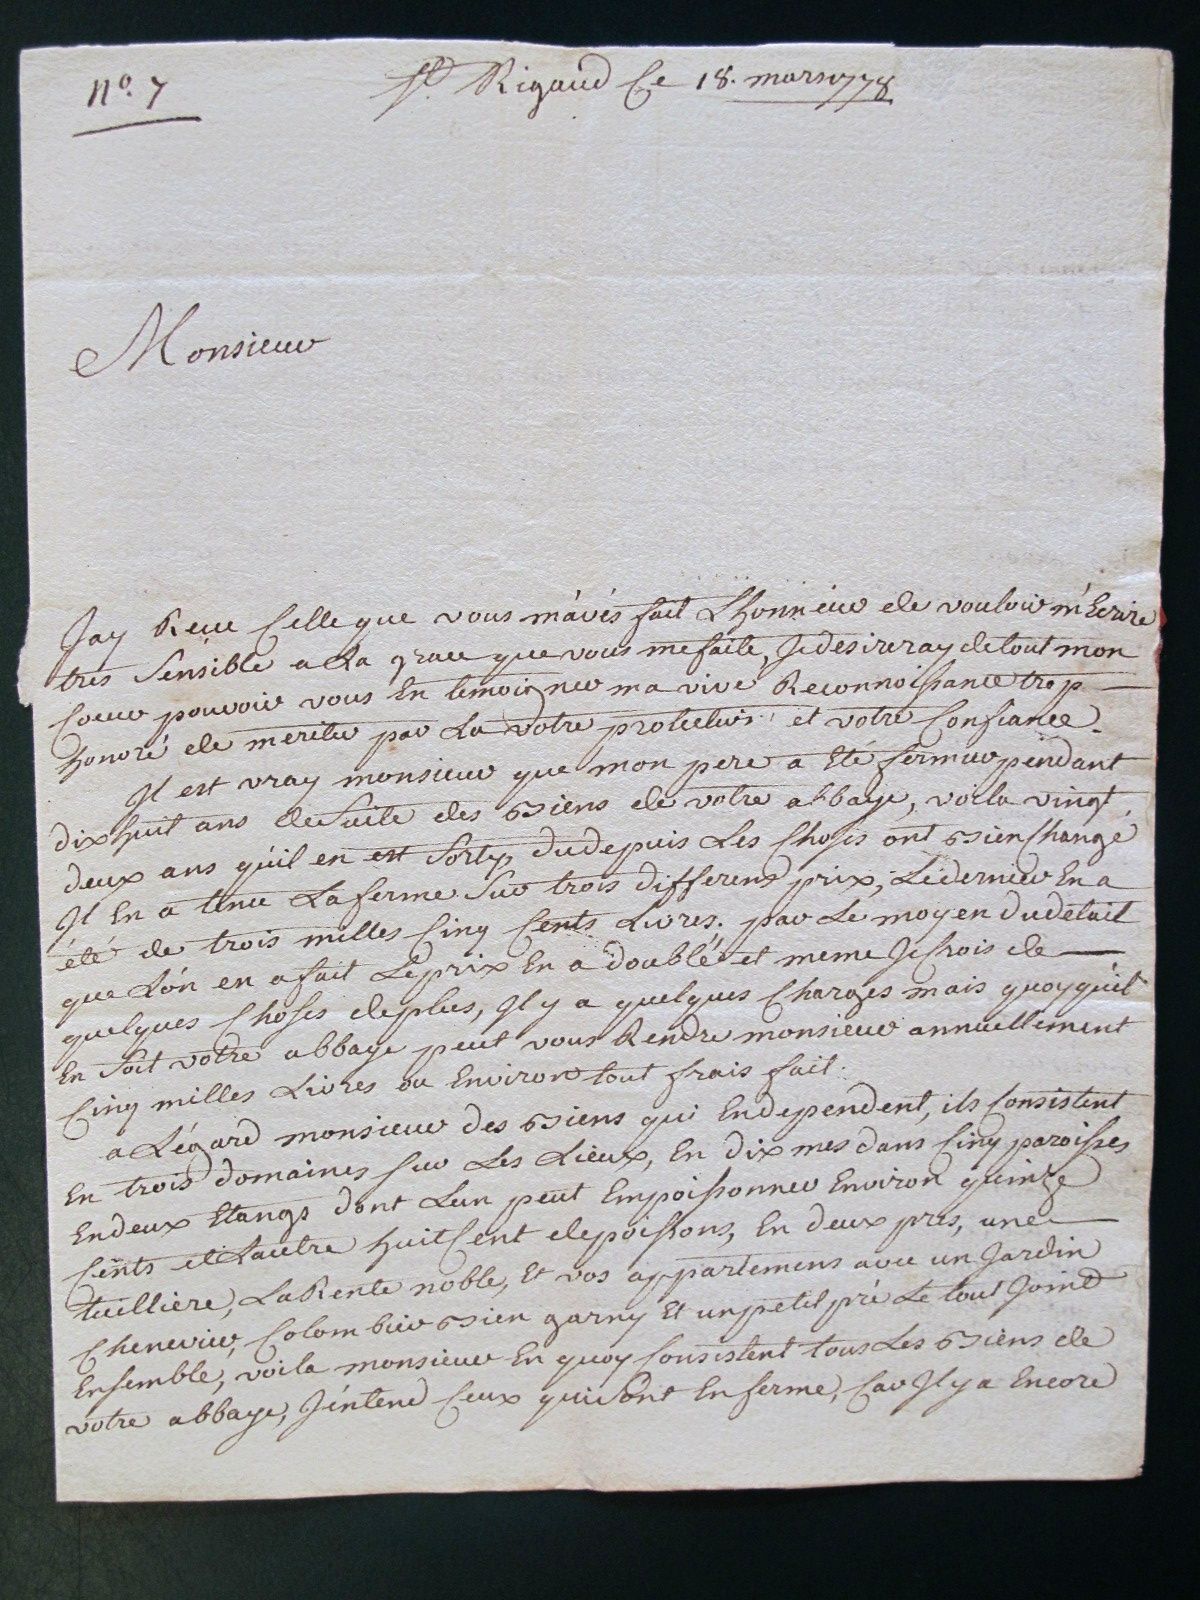 N.º 7
St. Rigaud Ce 18. mars 1778
Monsieur
Jay Reçu Celle que vous m'avés fait L'honneur de vouloir m'Ecrire
tres Sensible a La grace que vous me faite, Je desireray de tout mon
Coeur pouvoir vous En temoigner ma vive Reconnoissance trop
honoré de meriter par La votre protection et votre Confiance.
Il est vray monsieur que mon pere a Eté fermier pendant
dix huit ans de Suite des Biens de votre abbaye, voila vingt
deux ans qu'il en est Sorty, du depuis Les Choses ont Bien Changé
Il En a tenu La ferme Sur trois differens prix, Le dernier En a
été de trois milles Cinq Cents Livres. par Le moyen du detail
que L'on en a fait Le prix En a doublé et meme Je Crois de
quelques Choses de plus, Il y a quelques Charges mais quoy qu'il
En Soit votre abbaye peut vous Rendre monsieur annuellement
Cinq milles Livres ou Environ tout frais fait.
a L'égard monsieur des Biens qui En dependent, ils Consistent
En trois domaines sur Les Lieux, En dixmes dans Cinq paroisses
En deux Etangs dont L'un peut Empoissonner Environ quinze
Cents et Lautre huit Cent de poissons, En deux prés, une
tuilliere, La Rente noble, Et vos appartemens avec un Jardin
Chenevier, Colombier Bien garny Et un petit pré Le tout Joint
Ensemble, voila monsieur En quoy Consistent tous Les Biens de
votre abbaye, J'intend Ceux qui Sont En ferme, Car Il y a Encore